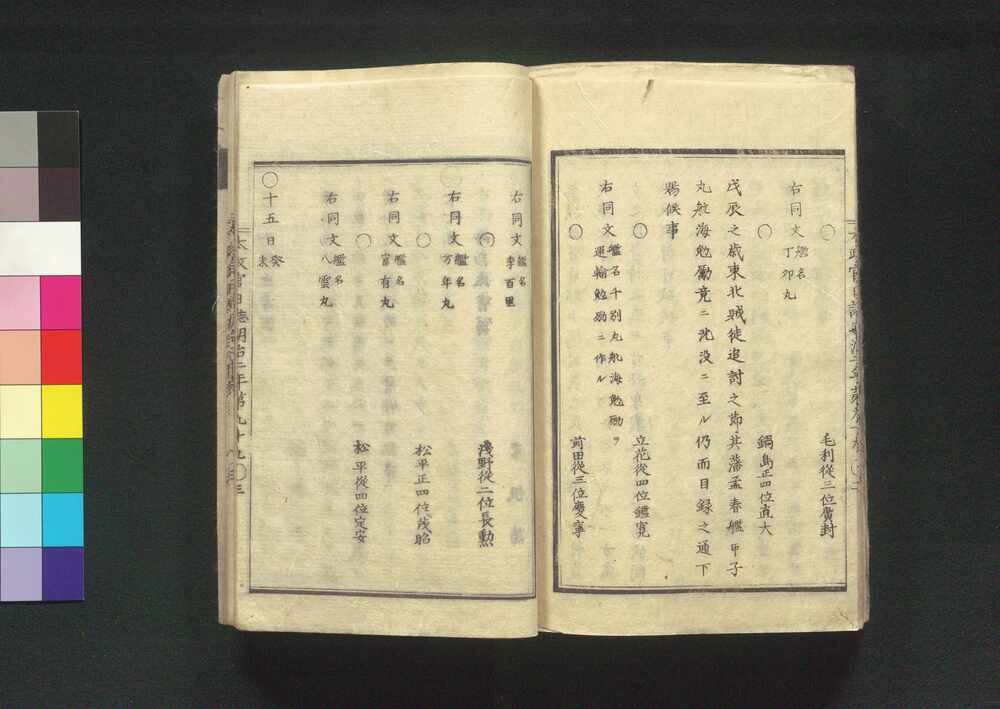 ○
毛利從三位廣封
右同文艦名丁卯丸
○
鍋島正四位直大
戊辰之歳東北賊徒追討之節其藩孟春艦甲子
丸航海勉勵竟ニ沈没ニ至ル仍而目録之通下
賜候事
○
立花從四位鑑寛
右同文艦名千別丸航海勉勵ヲ運輸勉勵ニ作ル
○
前田從三位慶寧
右同文艦名李百里
○
淺野從二位長勲
右同文艦名万年丸
○
松平正四位茂昭
右同文艦名富有丸
○
松平從四位定安
右同文艦名八雲丸
○十五日癸未
太政官日誌明治二年第九十九○三